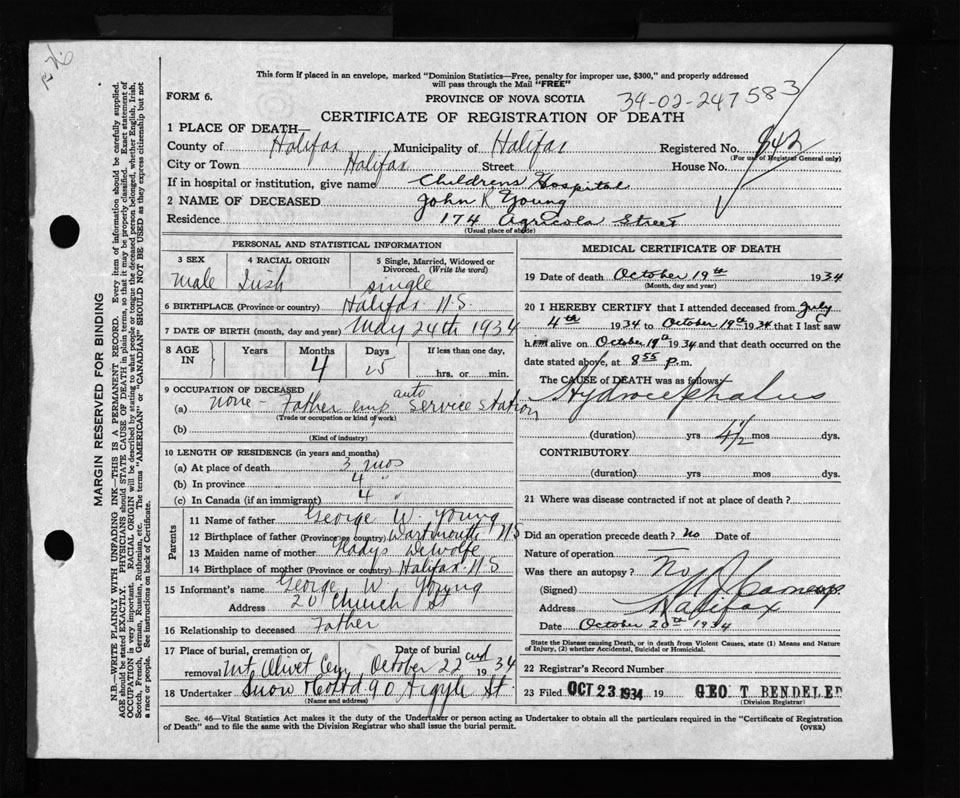 This form if placed in an envelope, marked "Dominion Statistics—Free, penalty for improper use, $300," and properly addressed
will pass through the Mail "FREE"
FORM 6.
PROVINCE OF NOVA SCOTIA
34-02-247583
CERTIFICATE OF REGISTRATION OF DEATH
1 PLACE OF DEATH—
County of Halifax Municipality of Halifax Registered No. 842
(For use of Registrar General only)
City or Town Halifax Street House No.
If in hospital or institution, give name Childrens Hospital
2 NAME OF DECEASED John K Young
Residence 174 Agricola Street
(Usual place of abode)
PERSONAL AND STATISTICAL INFORMATION
3 SEX 4 RACIAL ORIGIN 5 Single, Married, Widowed or
Divorced. (Write the word)
Male Irish single
6 BIRTHPLACE (Province or country) Halifax N.S.
7 DATE OF BIRTH (month, day and year) May 24th 1934
8 AGE IN Years Months Days If less than one day,
4 25 hrs. or min.
9 OCCUPATION OF DECEASED
(a) none - Father emp auto service station
(Trade or occupation or kind of work)
(b)
(Kind of industry)
10 LENGTH OF RESIDENCE (in years and months)
(a) At place of death 3 mos
(b) In province 4 "
(c) In Canada (if an immigrant) 4 "
Parents
11 Name of father George W. Young
12 Birthplace of father (Province or country) Dartmouth N S
13 Maiden name of mother Gladys DeWolfe
14 Birthplace of mother (Province or country) Halifax N S
15 Informant's name George W. Young
Address 20 Church St
16 Relationship to deceased Father
17 Place of burial, cremation or Date of burial
removal Mt Olivet Cem October 22nd 1934
18 Undertaker Snow & Co Ltd 90 Argyle St.
(Name and address)
MEDICAL CERTIFICATE OF DEATH
19 Date of death October 19th 1934
(Month, day and year)
20 I HEREBY CERTIFY that I attended deceased from July
4th 1934 to October 19th 1934 that I last saw
him alive on October 19th 1934 and that death occurred on the
date stated above, at 8 55 p.m.
The CAUSE of DEATH was as follows:
Hydrocephalus
(duration) yrs 4½ mos dys.
CONTRIBUTORY
(duration) yrs mos dys.
21 Where was disease contracted if not at place of death?
Did an operation precede death? No Date of
Nature of operation —
Was there an autopsy? No
(Signed)
Address Halifax
Date October 20th 1934
State the Disease causing Death, or in death from Violent Causes, state (1) Means and Nature
of Injury, (2) whether Accidental, Suicidal or Homicidal.
22 Registrar's Record Number
23 Filed OCT 23 1934 19 GEO T BENDELER
(Division Registrar)
Sec. 46—Vital Statistics Act makes it the duty of the Undertaker or person acting as Undertaker to obtain all the particulars required in the "Certificate of Registration
of Death" and to file the same with the Division Registrar who shall issue the burial permit.
(OVER)
MARGIN RESERVED FOR BINDING
N.B.—WRITE PLAINLY WITH UNFADING INK—THIS IS A PERMANENT RECORD. Every item of information should be carefully supplied.
AGE should be stated EXACTLY. PHYSICIANS should STATE CAUSE OF DEATH in plain terms, so that it may be properly classified. Exact statement of
OCCUPATION is very important. RACIAL ORIGIN will be described by stating to what people or tongue the deceased person belonged, whether English, Irish,
Scotch, French, German, Russian, Ruthenian, etc. The terms "AMERICAN" or "CANADIAN" SHOULD NOT BE USED as they express citizenship but not
a race or people. See instructions on back of Certificate.